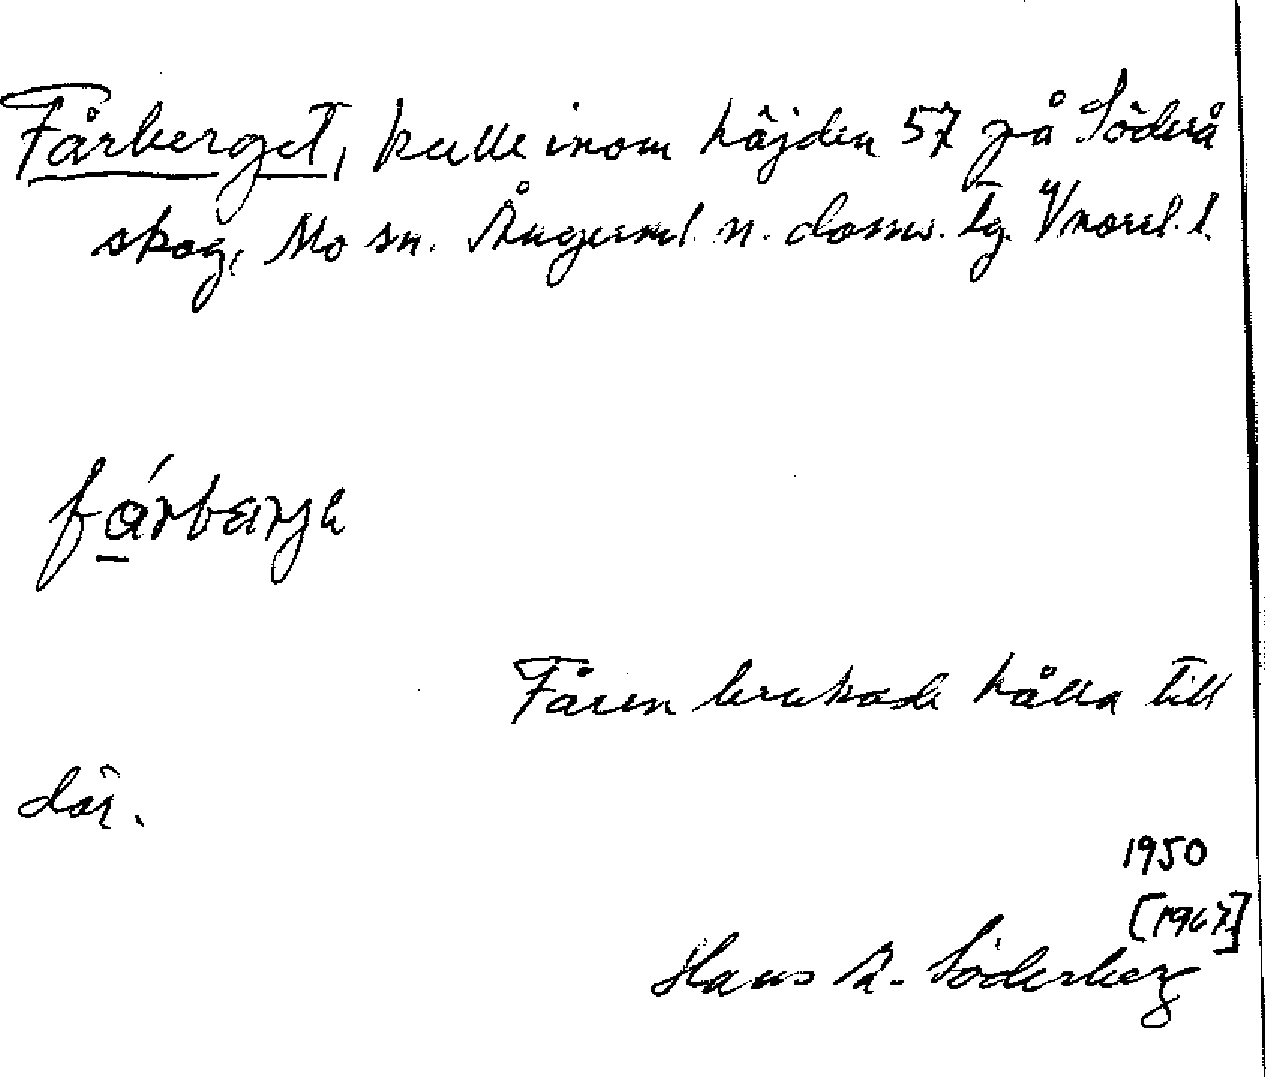 Fårberget, kulle inom höjden 57 på Söderå
skog, Mo sn. Ångerml. n. doms. lg. V norrl. l.
fárbærjɛ
Fåren brukade hålla till
där.
1950
[1967]
Hans A. Söderberg